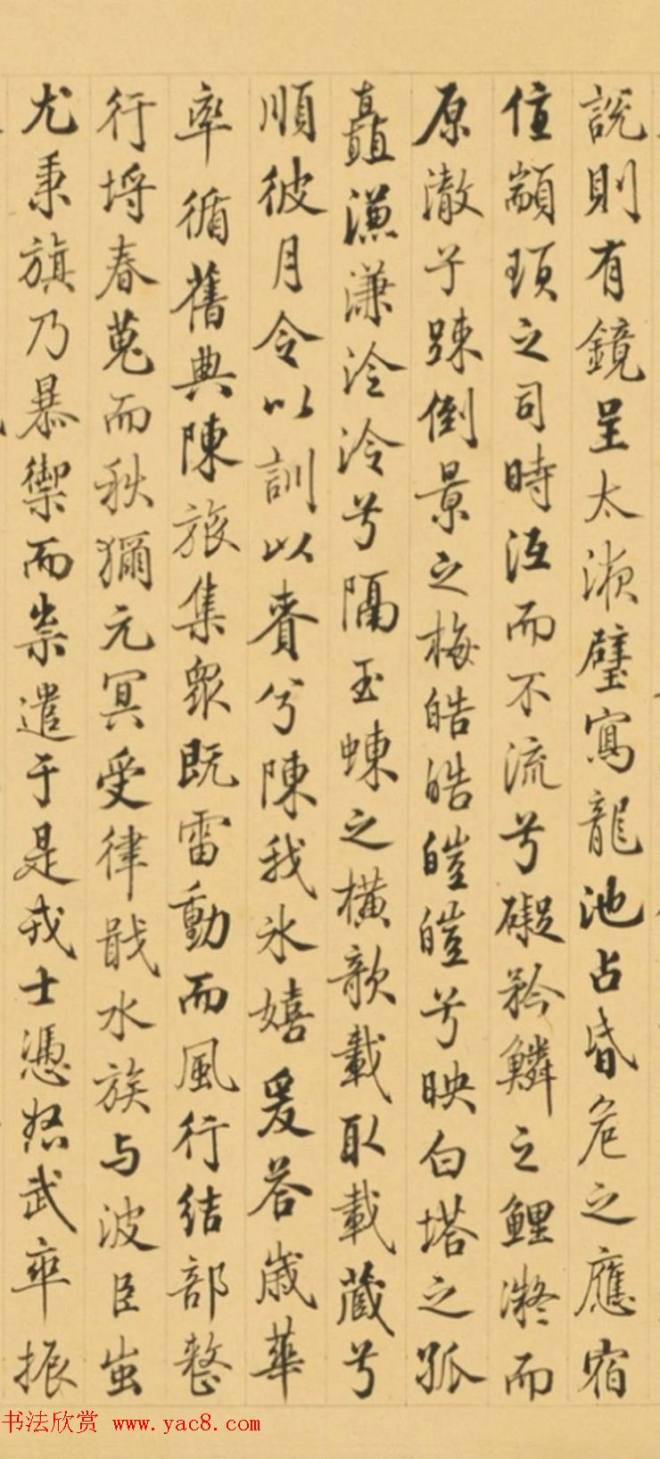 說則有鏡呈太液璧寫龍池占昏危之應宿
值顓頊之司時沍而不流兮礙矜鱗之鯉凝而
原澈兮踈倒景之梅皓皓皚皚兮映白塔之孤
矗溓溓泠泠兮隔玉蝀之橫歌載取載藏兮
順彼月令以訓以賚兮陳我氷嬉爰答歲華
率循舊典陳旅集眾既雷動而風行結部整
行埒春蒐而秋獮元冥受律戢水族与波臣蚩
尤秉旗乃暴禦而祟遣于是戎士憑怒武卒振
书法欣赏 www.yac8.com